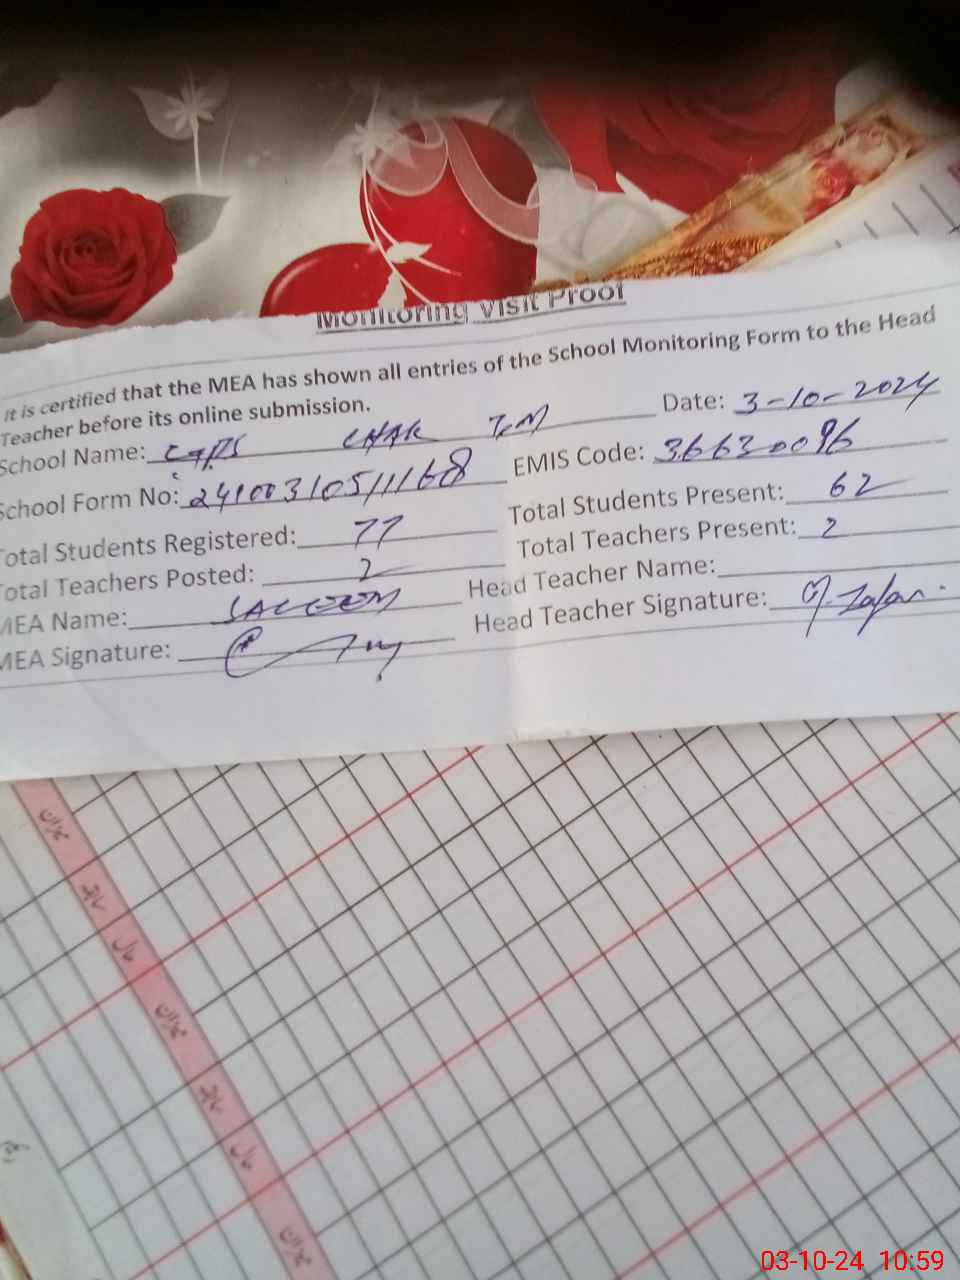 Monitoring Visit Proof
It is certified that the MEA has shown all entries of the School Monitoring Form to the Head
Teacher before its online submission.
Date: 3-10-2024
School Name: GPS CHAK
EMIS Code: 36630096
School Form No: 24100310511168
Total Students Present: 62
Total Students Registered: 77
Total Teachers Present: 2
Total Teachers Posted: 2
Head Teacher Name:
MEA Name: SALEEM
Head Teacher Signature: M. Zafar.
MEA Signature:
میزان
سابقہ
حال
میزان
سابقہ
حال
میزان
03-10-24 10:59